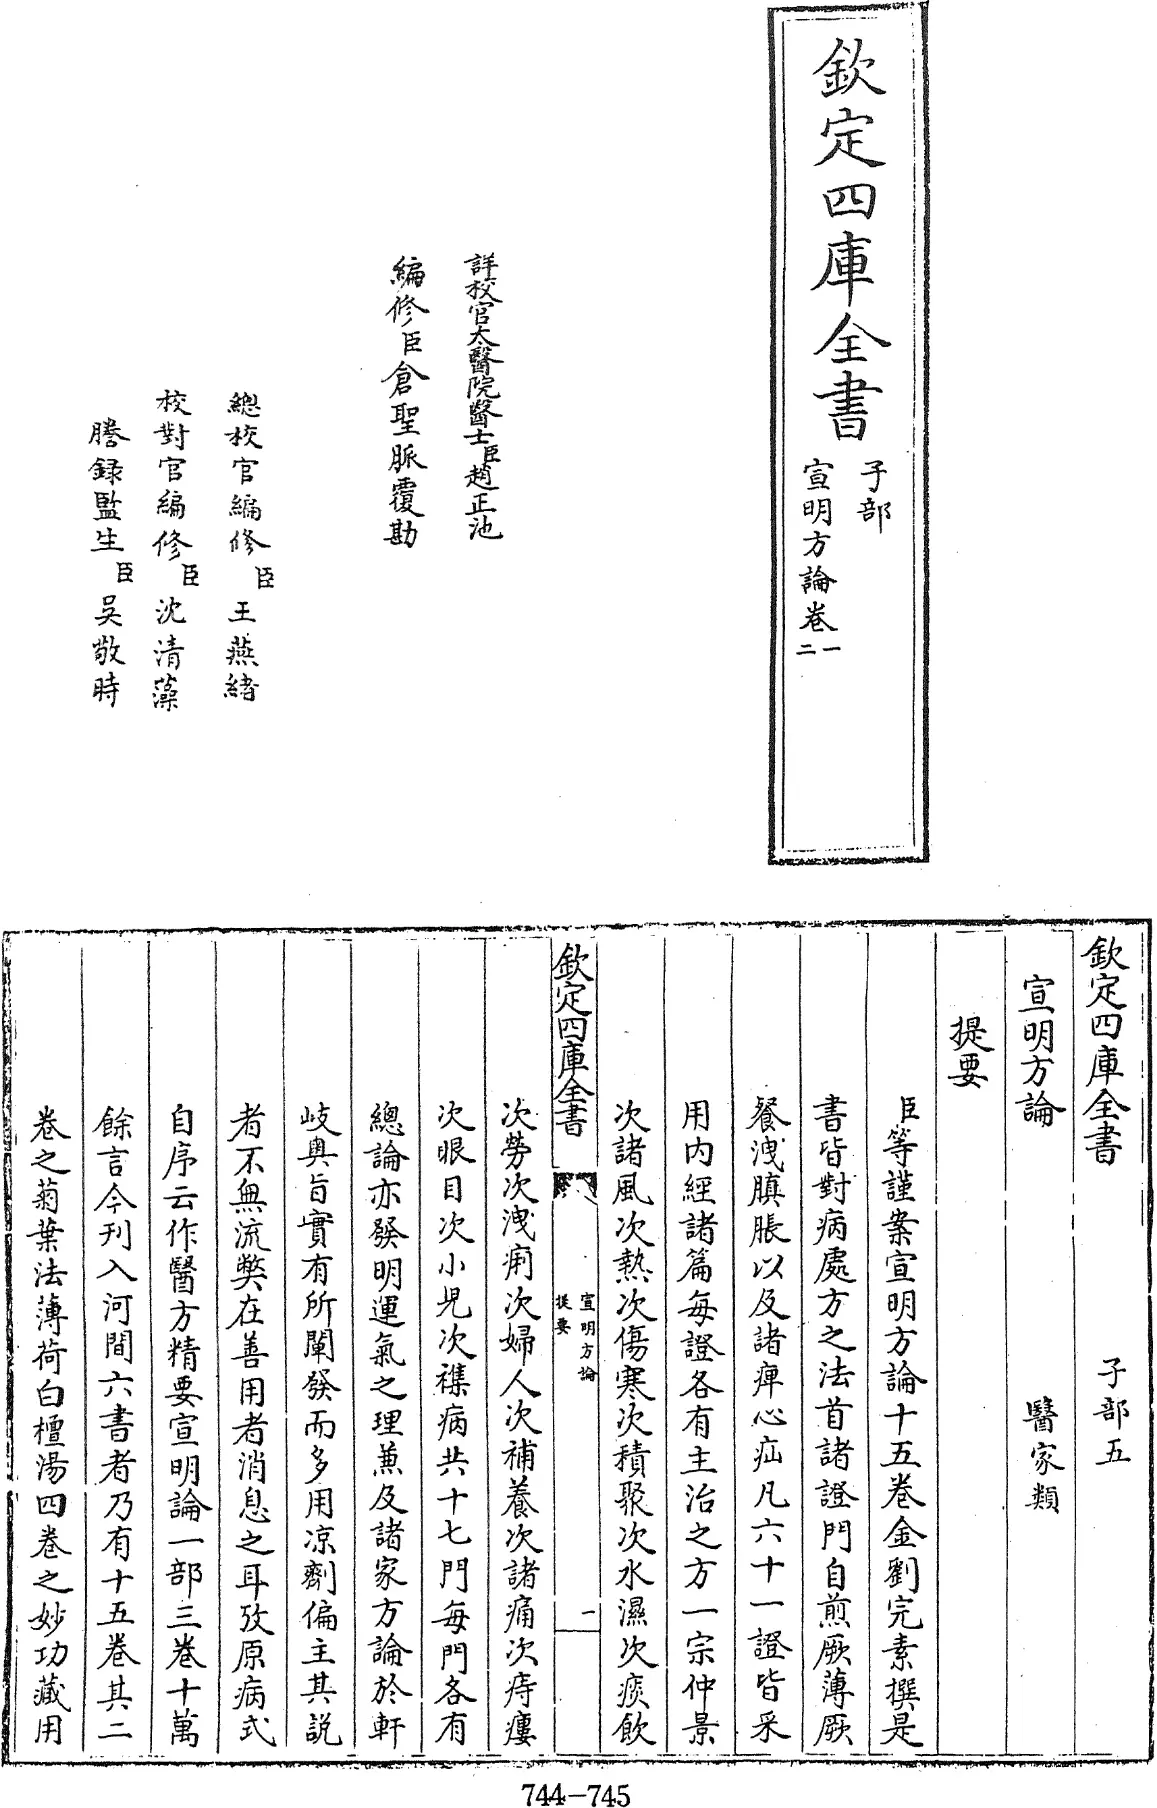 欽定四庫全書
子部
宣明方論卷一二
詳校官太醫院醫士臣趙正池
編修臣倉聖脈覆勘
總校官編修臣王燕緒
校對官編修臣沈清藻
謄錄監生臣吳敬時
欽定四庫全書 子部五
宣明方論 醫家類
提要
臣等謹案宣明方論十五卷金劉完素撰是
書皆對病處方之法首諸證門自煎厥薄厥
餐洩䐜脹以及諸痺心疝凡六十一證皆采
用內經諸篇每證各有主治之方一宗仲景
次諸風次熱次傷寒次積聚次水濕次痰飲
欽定四庫全書 宣明方論 提要 一
次勞次洩痢次婦人次補養次諸痛次痔瘻
次眼目次小兒次襍病共十七門每門各有
總論亦發明運氣之理兼及諸家方論於軒
岐奧旨實有所闡發而多用涼劑偏主其說
者不無流弊在善用者消息之耳攷原病式
自序云作醫方精要宣明論一部三卷十萬
餘言今刊入河間六書者乃有十五卷其二
卷之菊葉法薄荷白檀湯四卷之妙功藏用
744-745